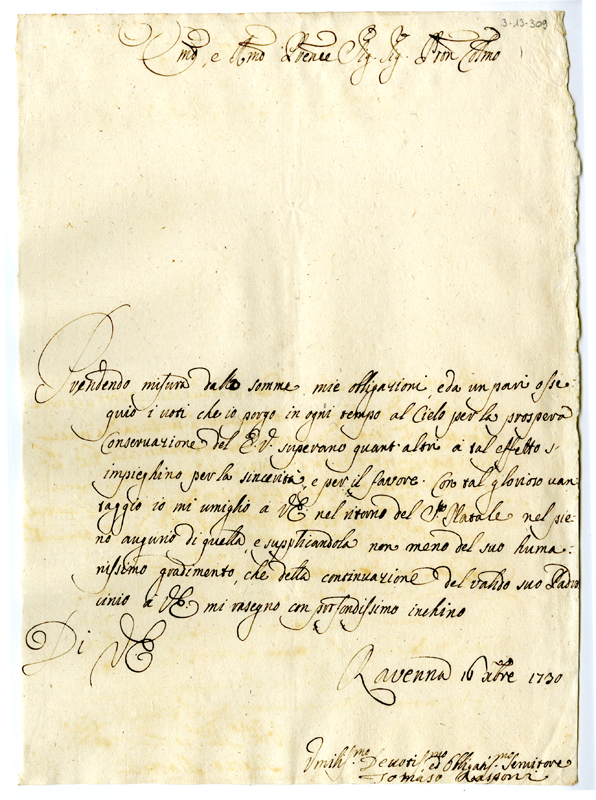 3-13-309
Emo, e Rmo Prence Sig. Sig. Pron Colmo
Prendendo misura dalle somme mie obligazioni, e da un pari osse=
quio i voti che io porgo in ogni tempo al Cielo per la prospera
Conseruazione del E.V. superano quant'altri à tal effetto s'
impieghino per la sincerità, e per il favore. Con tal glorioso uan=
taggio io mi umiglio à VE nel ritorno del Sto Natale nel pie=
no augurio di quella, e supplicandola non meno del suo huma=
nissimo gradimento, che della continuazione del valido suo Padro
cinio à VE mi rasegno con profondissimo inchino
Di VE
Ravenna 16 Xbre 1730
Vmilis.mo Deuotis.mo ed Obligatis.mo Seruitore
Tomaso Rasponi